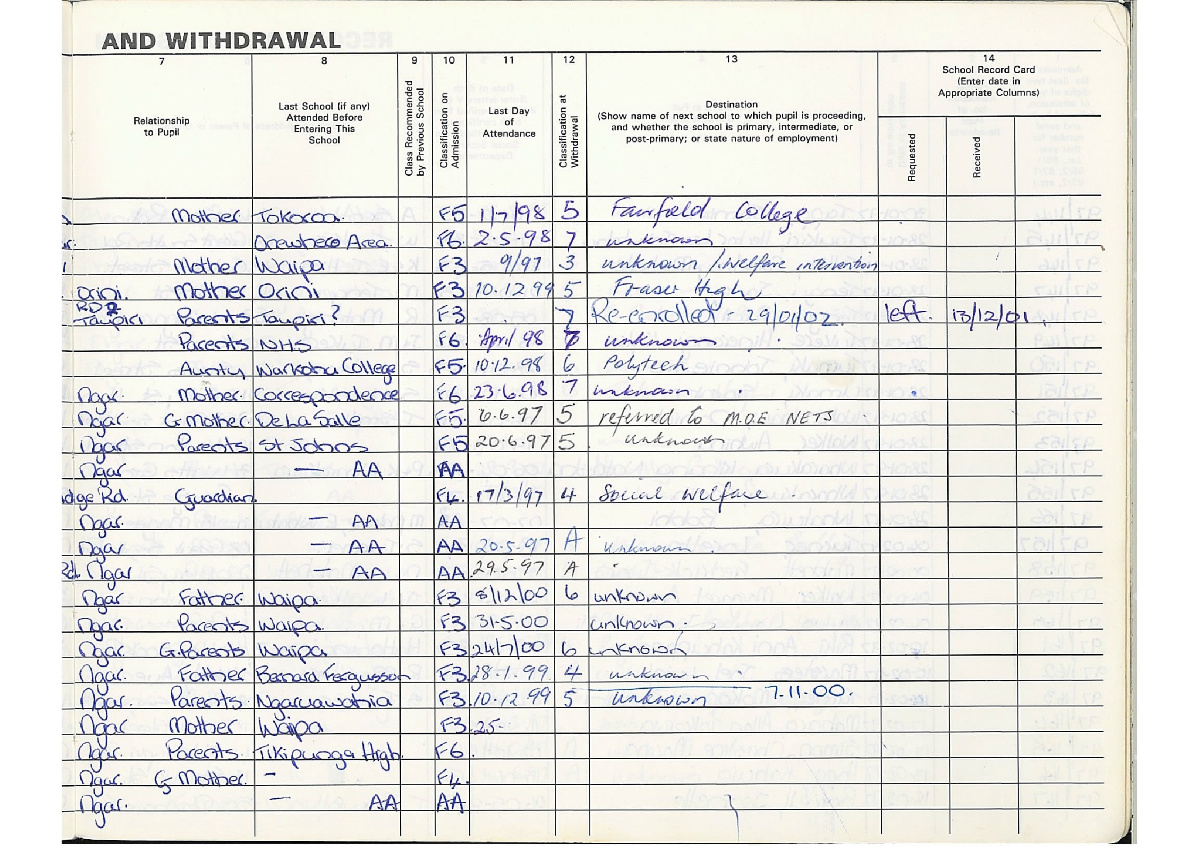 AND WITHDRAWAL
7 8 9 10 11 12 13 14
Relationship to Pupil
Last School (if any) Attended Before Entering This School
Class Recommended by Previous School
Classification on Admission
Last Day of Attendance
Classification at Withdrawal
Destination
(Show name of next school to which pupil is proceeding, and whether the school is primary, intermediate, or post-primary; or state nature of employment)
School Record Card
(Enter date in Appropriate Columns)
Requested
Received
Mother Tokoroa. F5 1/7/98 5 Fairfield College
Area. F6. 2.5.98 7 unknown
Mother Waipa F3 9/97 3 unknown / Welfare intervention
Orini. Mother Orini F3 10.12.99 5 Fraser High
RD2
Taupiri Parents Taupiri? F3 7 Re-enrolled - 29/01/02. left. 13/12/01.
Parents NHS F6. April 98 7 unknown
Aunty College F5. 10.12.98 6 Polytech
Ngar. Mother. Correspondence F6 23.6.98 7 unknown
Ngar G.Mother De La Salle F5. 6.6.97 5 referred to M.O.E NETS
Ngar Parents St Johns F5 20.6.97 5 unknown
Ngar — AA AA
Rd. Guardian. F4. 17/3/97 4 Social Welfare
Ngar. — AA AA
Ngar — AA AA 20.5.97 A unknown.
Rd. Ngar — AA AA 29.5.97 A
Ngar Father. Waipa. F3 8/12/00 6 unknown
Ngar. Parents Waipa. F3 31.5.00 unknown.
Ngar. G.Parents Waipa F3 24/7/00 6 unknown
Ngar. Father Bernard Fergusson F3 28.1.99 4 unknown.
Ngar. Parents. Ngaruawahia F3 10.12.99 5 unknown 7.11.00.
Ngar Mother Waipa F3 25.
Ngar. Parents. Tikipunga High. F6.
Ngar. G Mother. — F4.
Ngar. — AA AA